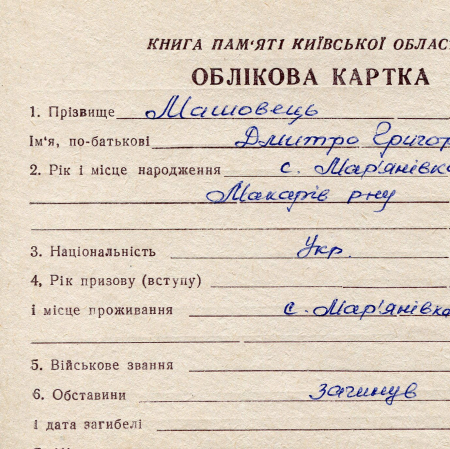 КНИГА ПАМ'ЯТІ КИЇВСЬКОЇ ОБЛАС
ОБЛІКОВА КАРТКА
1. Прізвище Машовець
Ім'я, по-батькові Дмитро Григор
2. Рік і місце народження с. Мар'янівка
Макарів р-ну
3. Національність Укр.
4. Рік призову (вступу)
і місце проживання с. Мар'янівка
5. Військове звання
6. Обставини загинув
і дата загибелі